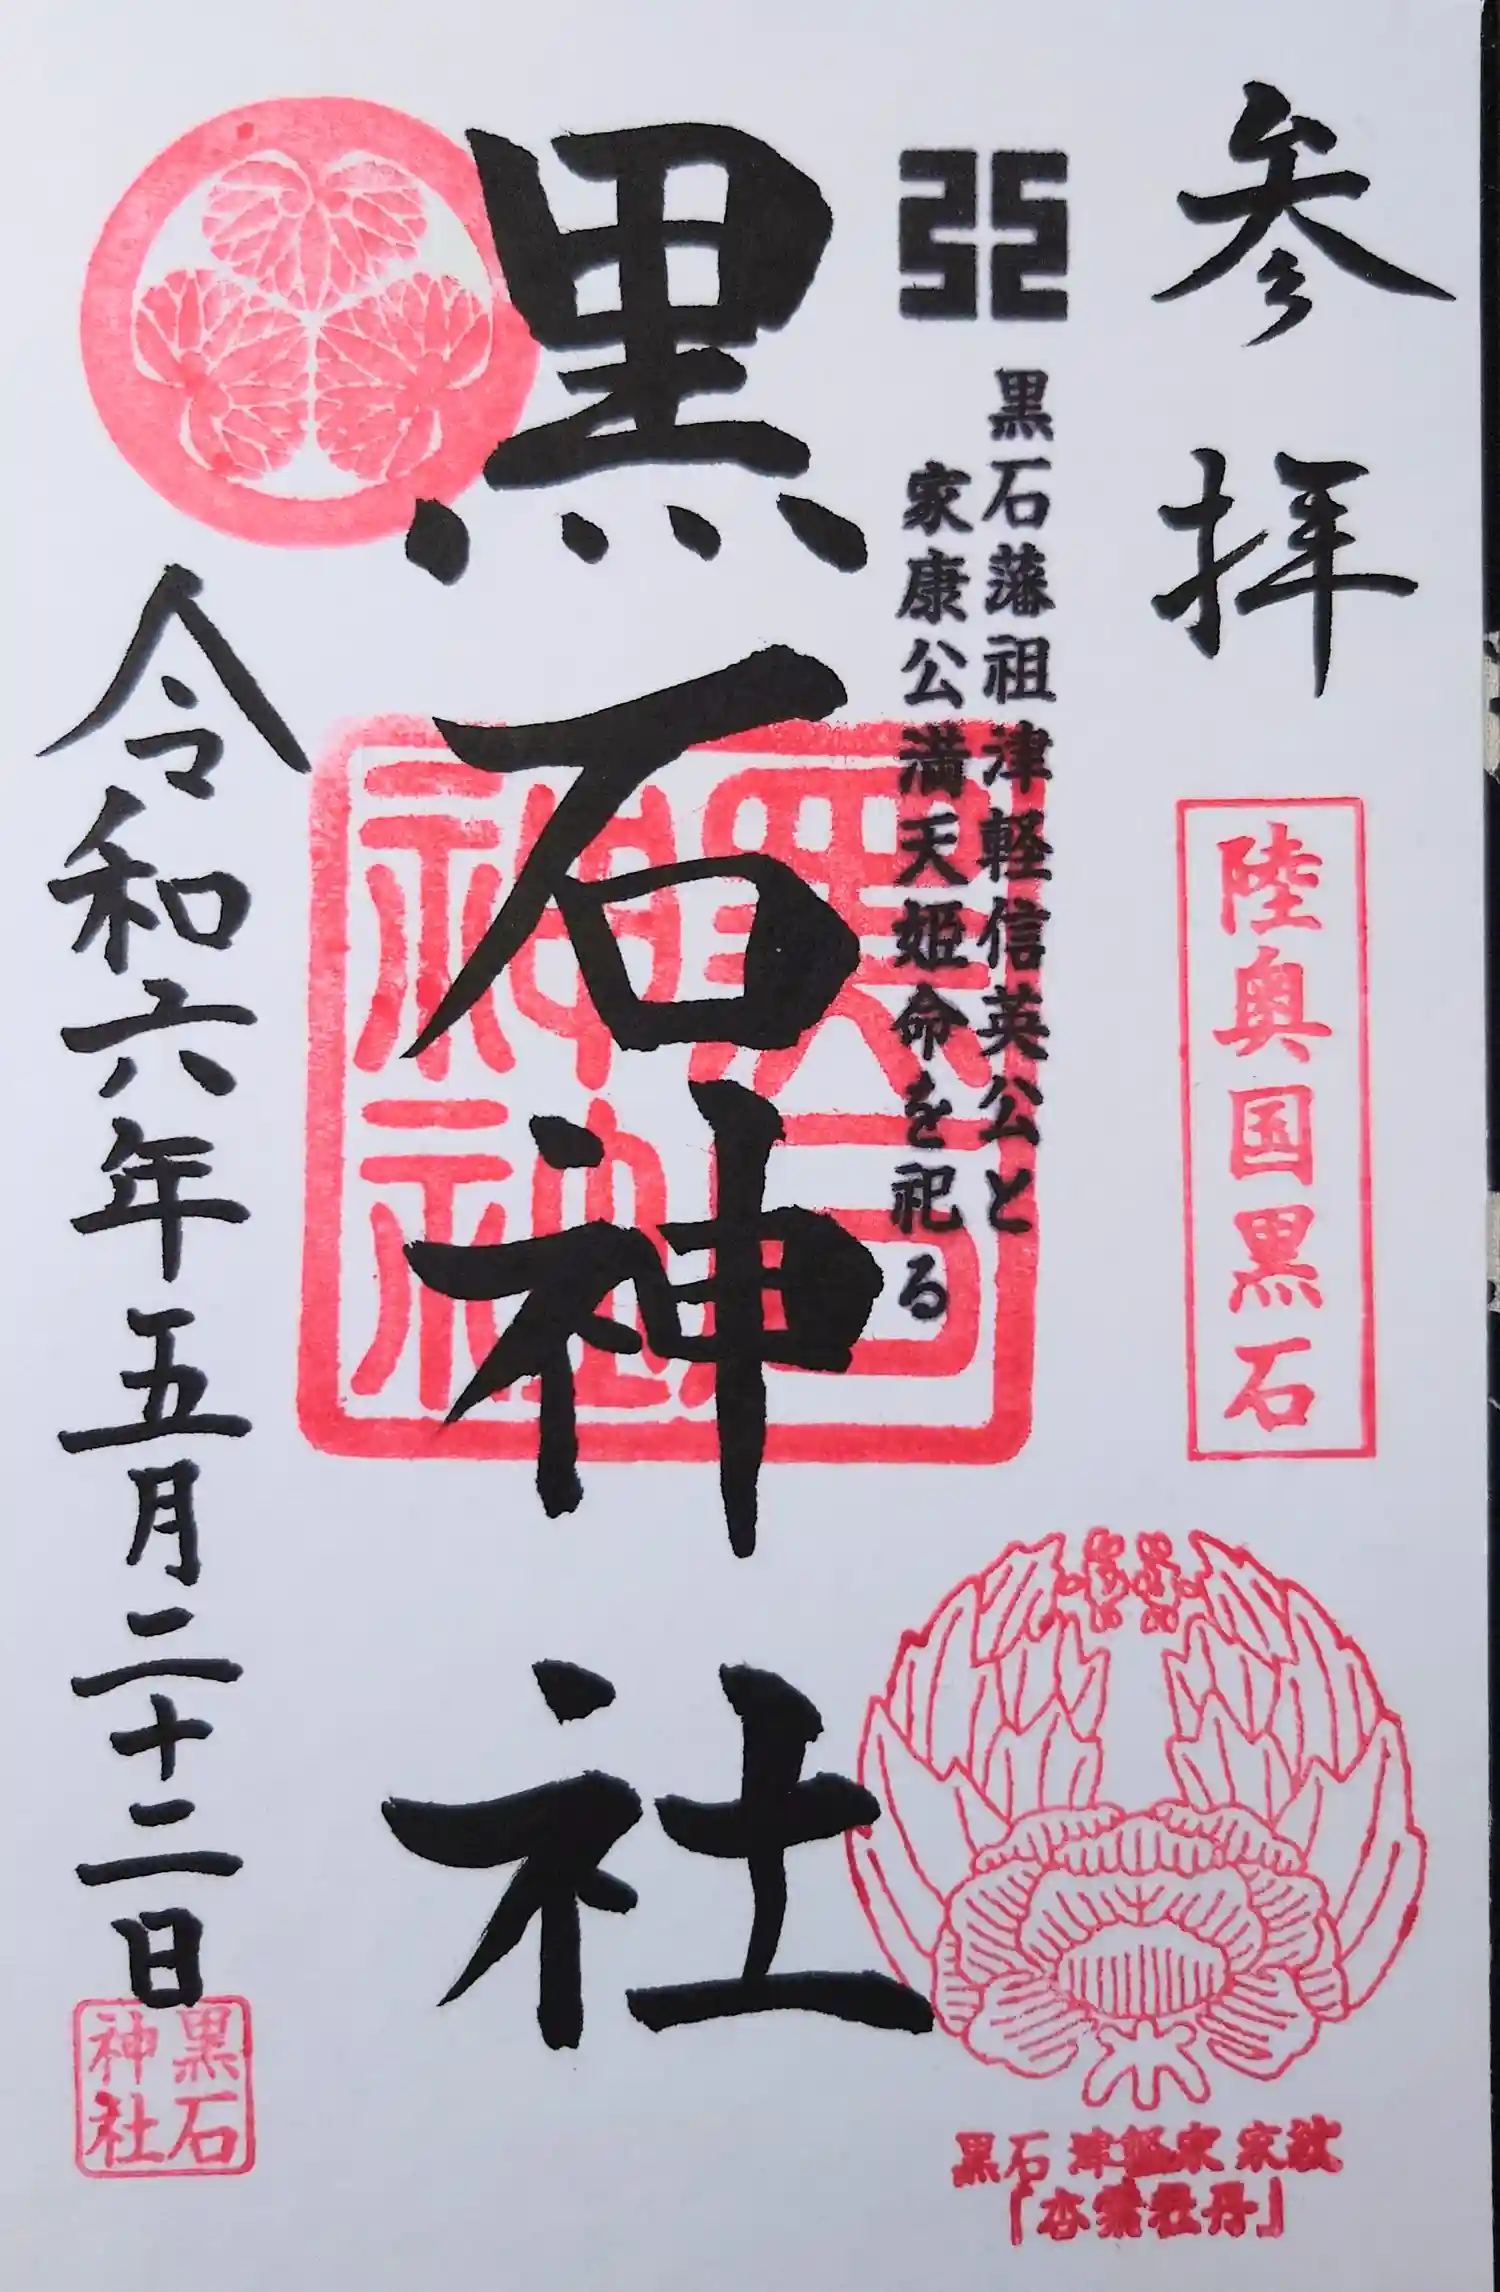 参拝
陸奥国黒石
黒石藩祖津軽信英公と
家康公満天姫命を祀る
黒石神社
黒石神社
令和六年五月二十二日
黒石
神社
黒石津軽家家紋
「杏葉牡丹」